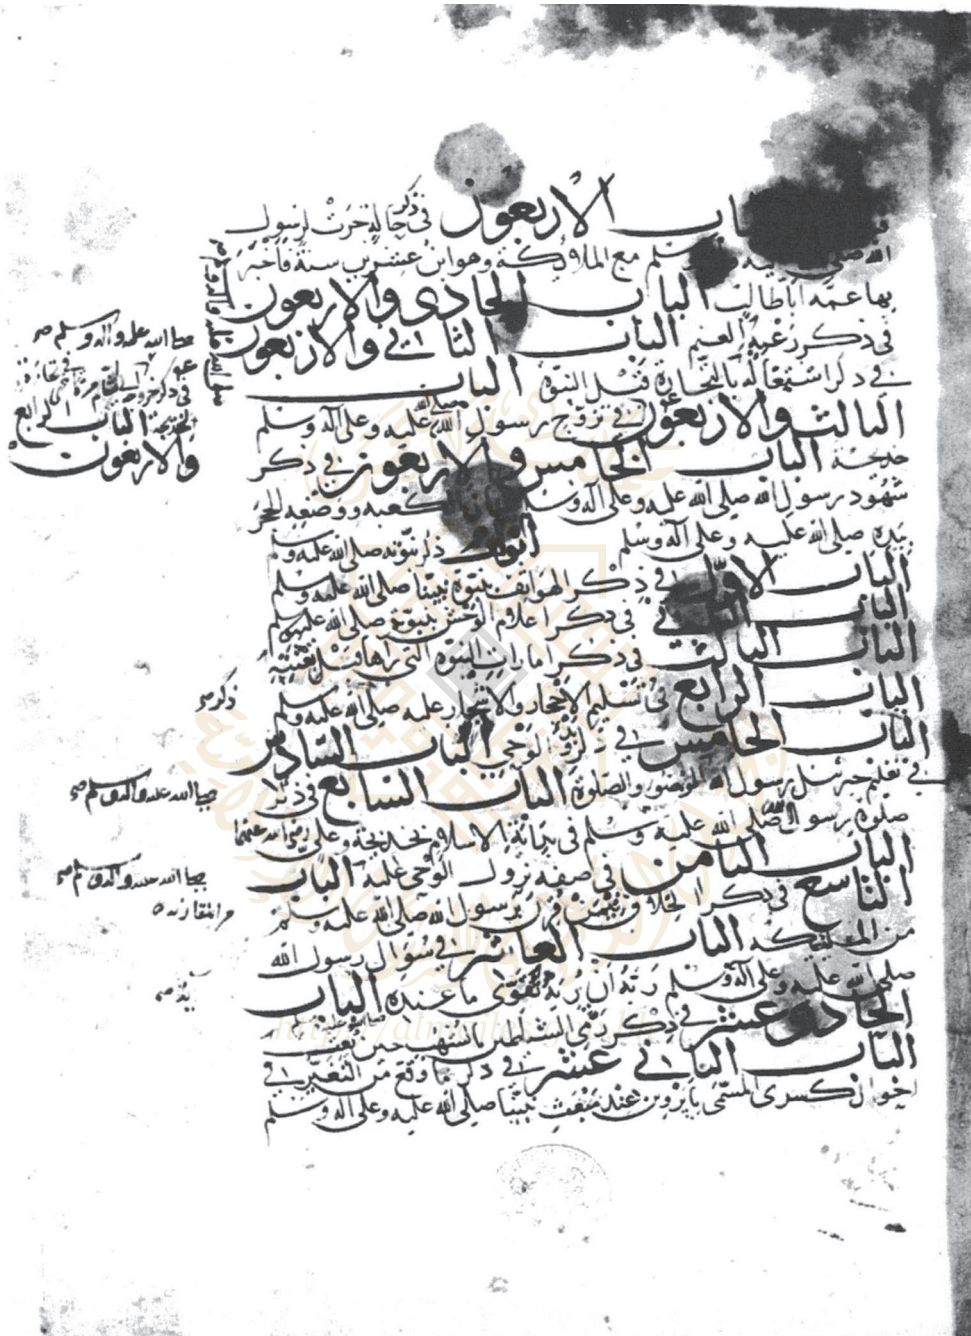 الباب الاربعون في ذكر حالة جرت لرسول
الله صلى الله عليه وسلم مع الملائكة وهو ابن عشرين سنة فاخبر
بها عمه ابا طالب الباب الحادي والاربعون
في ذكر رعيه الغنم الباب الثاني والاربعون
في ذكر اشتغاله بالتجارة قبل النبوة الباب
الثالث والاربعون في تزويج رسول الله صلى الله عليه وعلى آله وسلم
خديجة الباب الخامس والاربعون في ذكر
شهود رسول الله صلى الله عليه وعلى آله وسلم الكعبة ووضعه الحجر
بيده صلى الله عليه وعلى آله وسلم ابواب ذكر نبوته صلى الله عليه وسلم
الباب الاول في ذكر الهواتف بنبوة نبينا صلى الله عليه وسلم
الباب الثاني في ذكر اعلام الوحش بنبوته صلى الله عليه وسلم
الباب الثالث في ذكر امارات النبوة التي رآها قبل
الباب الرابع في تسليم الاحجار والاشجار عليه صلى الله عليه وسلم
الباب الخامس في ذكر بدو الوحي الباب السادس
في تعليم جبرئيل رسول الله الوضوء والصلوة الباب السابع في ذكر
صلوة رسول الله صلى الله عليه وسلم في بداية الاسلام بخديجة وعلي رضي الله عنهما
الباب الثامن في صفة نزول الوحي عليه الباب
التاسع في ذكر الخلاف فيمن قرن برسول الله صلى الله عليه وسلم
من الملائكة الباب العاشر في سؤال رسول الله
صلى الله عليه وعلى آله وسلم ربه ان يريه ما عنده الباب
الحادي عشر في ذكر رمي الشياطين بالشهب حين بعث
الباب الثاني عشر في ذكر ما وقع من التغير في
احوال كسرى المسمى بابرويز عند مبعث نبينا صلى الله عليه وعلى آله وسلم
صلى الله عليه وآله وسلم
صلى الله عليه وآله وسلم
في ذكر خروجه الى الشام مرة اخرى في تجارة
لخديجة الباب الرابع
والاربعون
ذكر
صلى الله عليه وآله وسلم
صلى الله عليه وآله وسلم